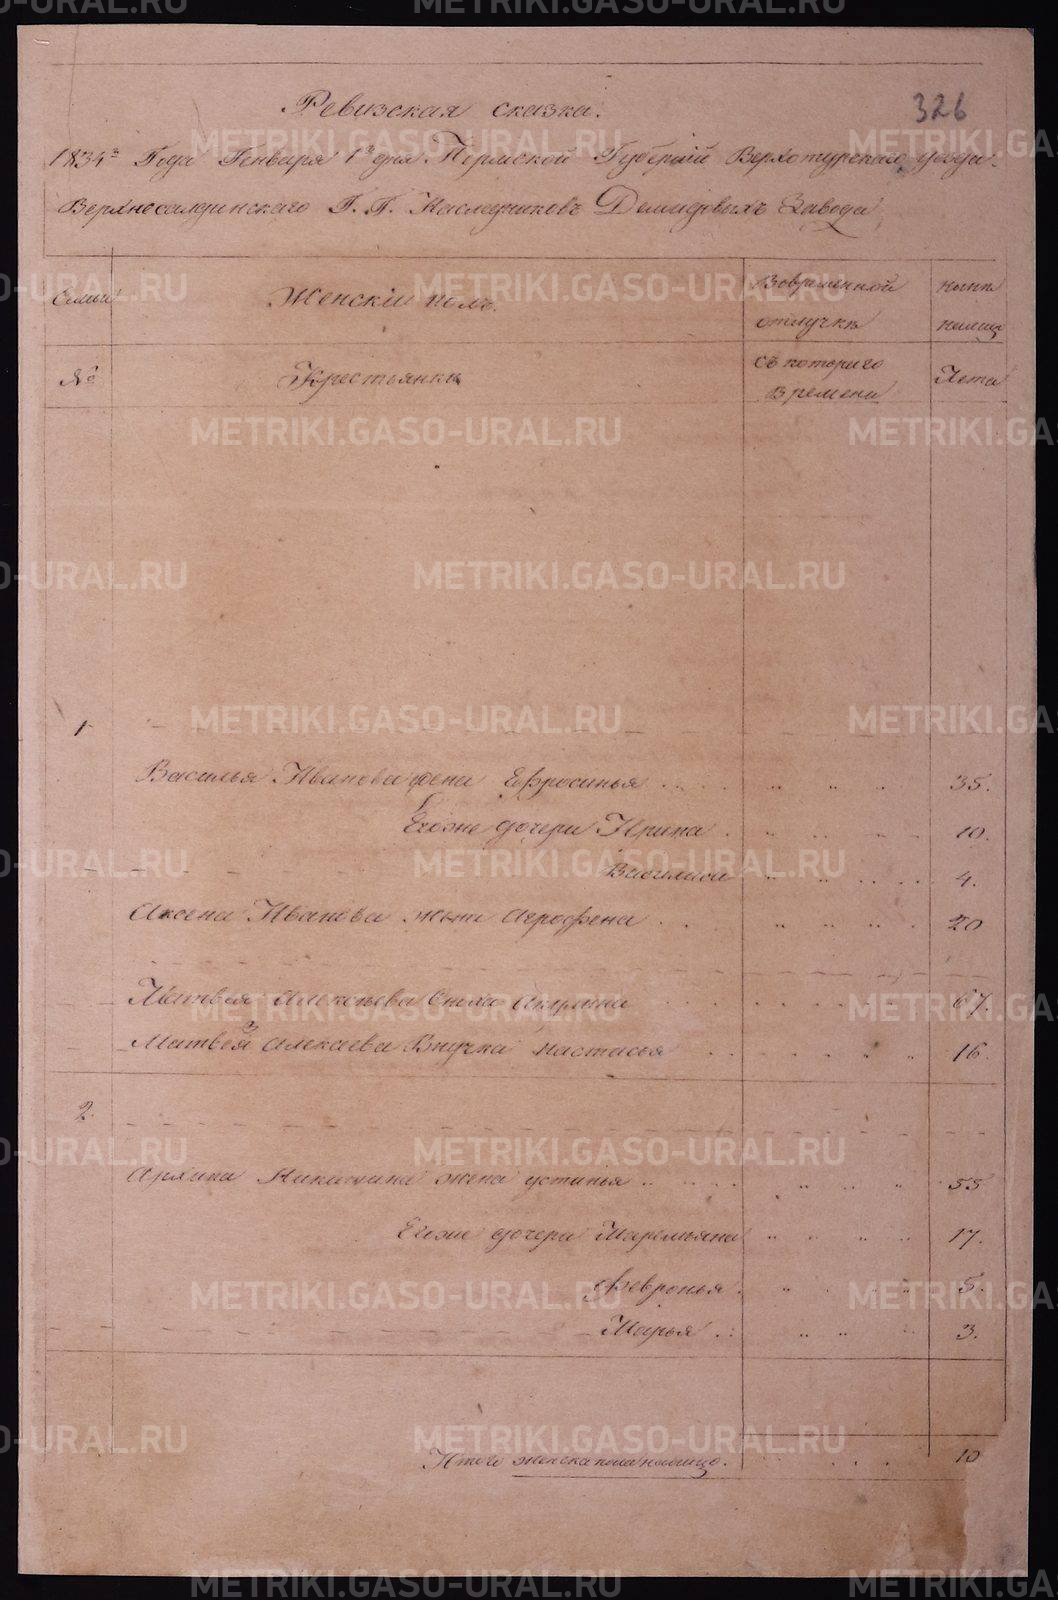 326
Ревизская сказка.
1834го Года Генваря 1го дня Пермской Губернии Верхотурского уезда
Верхнесалдинскаго Г. Г. Наследниковъ Демидовыхъ Завода
Семьи
Женскiй полъ.
Вовременной отлучке
ныне налицо
№
Крестьянки
Съ котораго времени
Лета
1
Василья Иванова жена Ефросинья 35.
Егоже дочери Ирина 10.
Василиса 4.
Аксена Иванова жена Агрофена 20
Матвея Алексеева Сноха Акулина 67.
Матвея Алексеева Внучка Настасья 16.
2.
Архипа Никитина жена Устинья 55
Егоже дочери Маремьяна 17.
Февронья 5.
Марья 3.
Итого женска пола налицо. 10
METRIKI.GASO-URAL.RU